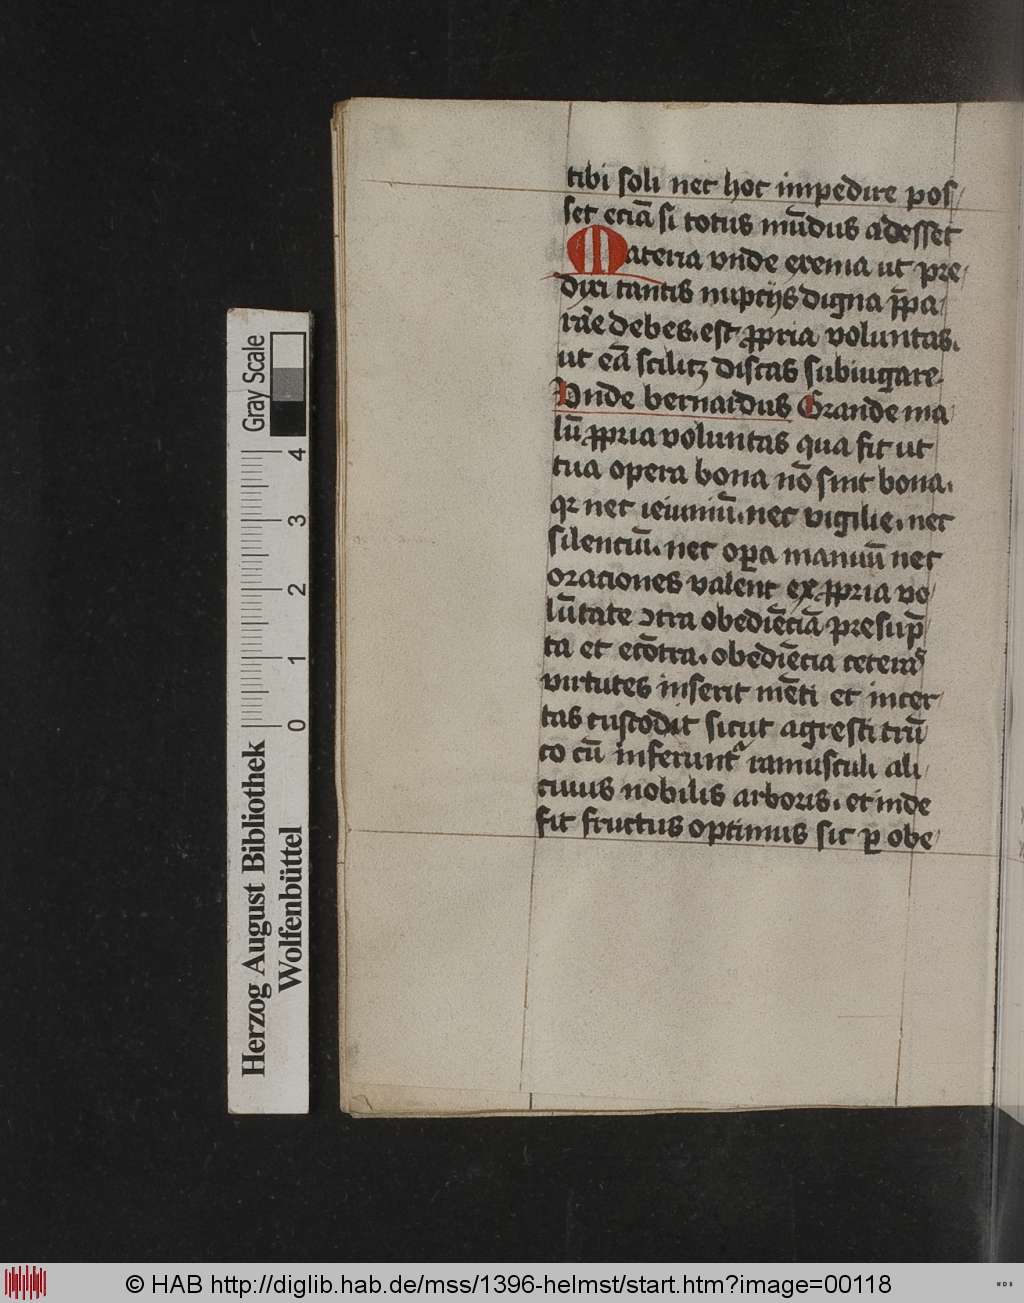 tibi soli nec hoc impedire pos/
set eciā si totus mūdus adesset
Materia vn̄de exenia ut pre/
dixi tantis nupcijs digna p̄pa/
rāe debes. est ꝓpria voluntas.
ut eā scilicꝫ discas subiugare.
Unde bernardus Grande ma/
lū ꝓpria voluntas qua fit ut
tua opera bona nō sint bona.
qꝛ nec ieiuniū. nec vigilie. nec
silenciū. nec oꝑa manuū nec
orationes valent ex ꝓpria vo/
lūtate ↄtra obediēciā presūp̄
ta et ecōtra. obediēcia cetera᷒
virtutes inserit mēti et incer/
tas custodit sicut agresti trū
co cū inferunt᷑ ramusculi ali/
cuius nobilis arboris. et inde
fit fructus optimus sic ꝑ obe/
Gray Scale
4 3 2 1 0
Herzog August Bibliothek
Wolfenbüttel
© HAB http://diglib.hab.de/mss/1396-helmst/start.htm?image=00118